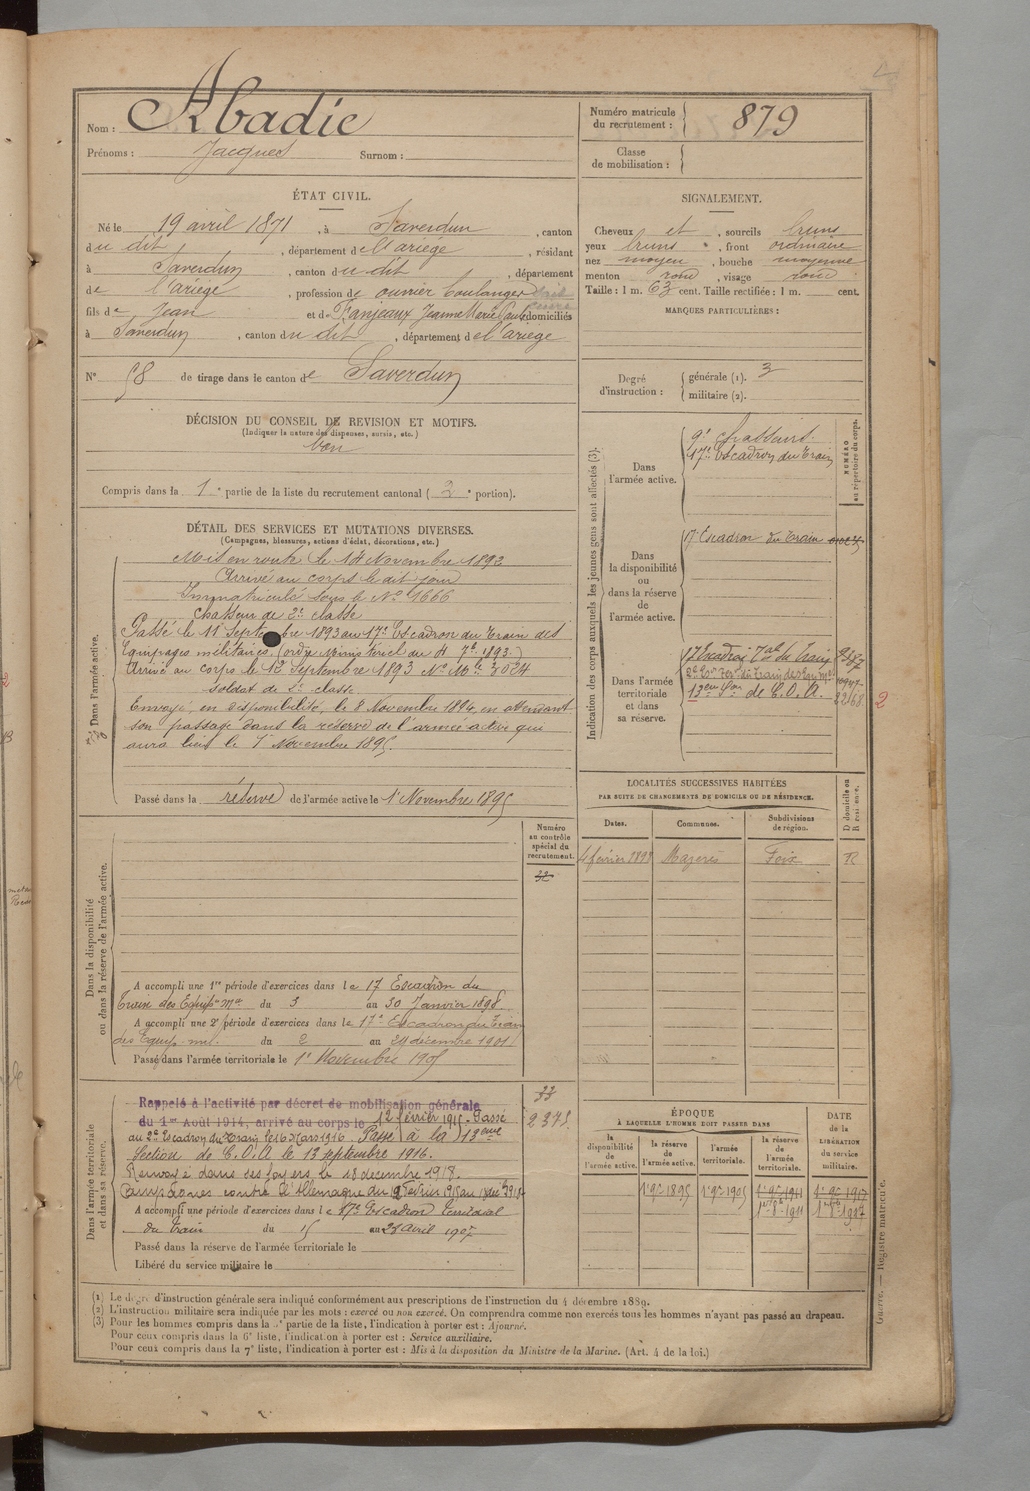 Nom : Abadie
Prénoms : Jacques Surnom :
Numéro matricule du recrutement : 879
Classe de mobilisation :
ÉTAT CIVIL.
Né le 19 avril 1871, à Saverdun, canton
du dit, département de l'ariège, résidant
à Saverdun, canton du dit, département
de l'ariège, profession de ouvrier boulanger
fils de Jean et de Fanjeaux Jeanne Marie Paule domiciliés
à Saverdun, canton du dit, département de l'ariège
N° 58 de tirage dans le canton de Saverdun
SIGNALEMENT.
Cheveux et, sourcils bruns
yeux bruns, front ordinaire
nez moyen, bouche moyenne
menton rond, visage rond
Taille : 1 m. 63 cent. Taille rectifiée : 1 m. cent.
MARQUES PARTICULIÈRES :
Degré d'instruction : générale (1). 3
militaire (2).
DÉCISION DU CONSEIL DE REVISION ET MOTIFS.
(Indiquer la nature des dispenses, sursis, etc.)
bon
Compris dans la 1e partie de la liste du recrutement cantonal ( 2e portion).
DÉTAIL DES SERVICES ET MUTATIONS DIVERSES.
(Campagnes, blessures, actions d'éclat, décorations, etc.)
Dans l'armée active.
Mis en route le 14 Novembre 1892
Arrivé au corps le dit jour
Immatriculé sous le No 1666
Chasseur de 2e classe
Passé le 11 Septembre 1893 au 17e Escadron du Train des
Equipages militaires (ordre Ministériel du 4 7bre 1893.)
Arrivé au corps le 12 Septembre 1893 No Mle 3024
soldat de 2e classe
Envoyé en disponibilité, le 8 Novembre 1894, en attendant
son passage dans la réserve de l'armée active qui
aura lieu le 1er Novembre 1895
Passé dans la réserve de l'armée active le 1er Novembre 1895
Indication des corps auxquels les jeunes gens sont affectés (3).
NUMÉRO au répertoire du corps.
Dans l'armée active.
9e Chasseurs.
17e Escadron du Train
Dans la disponibilité ou dans la réserve de l'armée active.
17 Escadron du Train
Dans l'armée territoriale et dans sa réserve.
17 Escadron Tal du Train
13eme Son de C.O.A.
2
LOCALITÉS SUCCESSIVES HABITÉES
PAR SUITE DE CHANGEMENTS DE DOMICILE OU DE RÉSIDENCE.
Dates. Communes. Subdivisions de région. D domicile ou R résidence.
4 février 1898 Mazeres Foix R
Numéro au contrôle spécial du recrutement.
Dans la disponibilité ou dans la réserve de l'armée active.
A accompli une 1re période d'exercices dans le 17 Escadron du
Train des Equip. Mres du 3 au 30 Janvier 1898
A accompli une 2e période d'exercices dans le 17e Escadron du Train
des Equip. mil. du 2 au 29 décembre 1901
Passé dans l'armée territoriale le 1er Novembre 1905
Dans l'armée territoriale et dans sa réserve.
Rappelé à l'activité par décret de mobilisation générale
du 1er Août 1914, arrivé au corps le 12 février 1915. Passé
au 2e Escadron du Train le 16 Mars 1916 Passé à la 13eme
Section de C.O.A le 13 septembre 1916.
Renvoyé dans ses foyers le 18 decembre 1918.
Campagnes contre l'Allemagne du 12 février 1915 au
A accompli une période d'exercices dans le 17e Escadron territorial
du Train du 15 au 23 Avril 1907
Passé dans la réserve de l'armée territoriale le
Libéré du service militaire le
2375.
ÉPOQUE
À LAQUELLE L'HOMME DOIT PASSER DANS
la disponibilité de l'armée active.
la réserve de l'armée active.
l'armée territoriale.
la réserve de l'armée territoriale.
DATE DE LA LIBÉRATION du service militaire.
1er 9bre 1895 1er 9bre 1905 1er 9bre 1911 1er 9bre 1917
Guerre. — Registre matricule.
(1) Le degré d'instruction générale sera indiqué conformément aux prescriptions de l'instruction du 4 décembre 1889.
(2) L'instruction militaire sera indiquée par les mots : exercé ou non exercé. On comprendra comme non exercés tous les hommes n'ayant pas passé au drapeau.
(3) Pour les hommes compris dans la partie de la liste, l'indication à porter est : Ajourné.
Pour ceux compris dans la 6e liste, l'indication à porter est : Service auxiliaire.
Pour ceux compris dans la 7e liste, l'indication à porter est : Mis à la disposition du Ministre de la Marine. (Art. 4 de la loi.)